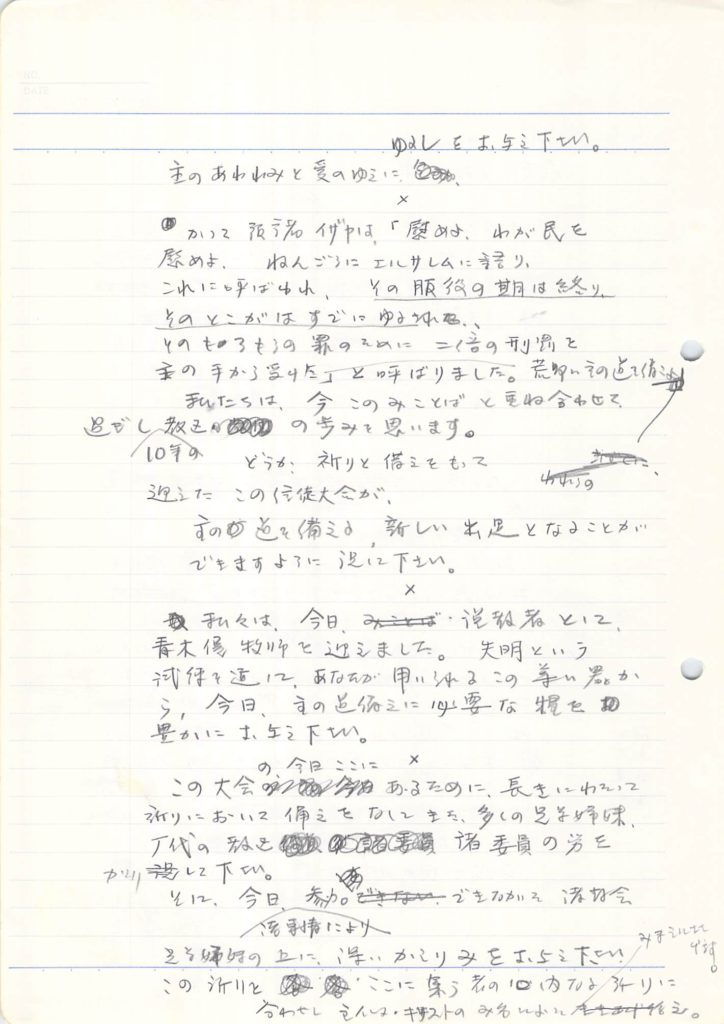 NO.
DATE
ゆるしをお与え下さい。
主のあわれみと愛のゆえに、
×
かつて預言者イザヤは、「慰めよ、わが民を
慰めよ、ねんごろにエルサレムに語り、
これに呼ばわれ、その服役の期は終り、
そのとがはすでにゆるされ、
そのもろもろの罪のために二倍の刑罰を
主の手から受けた」と呼ばりました。荒野に主の道を備
私たちは、今このみことばと重ね合わせて
過ぎし教区 の歩みを思います。
10年の
どうか、祈りと備えをもって
われらの
迎えたこの信徒大会が、
主の道を備える、新しい出足となることが
できますように導いて下さい。
×
私々は、今日、みことば・説教者として、
青木優牧師を迎えました。失明という
試練を通して、あなたが用いられるこの尊い器か
ら、今日、主の道備えに必要な糧を
豊かにお与え下さい。
×
の、今日ここに
この大会 あるために、長きにわたって
祈りにおいて備えをなしてきた、多くの兄弟姉妹、
代の教区 諸委員の労を
かえりみして下さい。
そして、今日、参加 できない できなかった諸教会
諸事情により
兄弟姉妹の上に、深いかえりみをお与え下さい
この祈りを ここに集う者の内なる祈りに
合わせし 主イエス・キリストのみ名によって